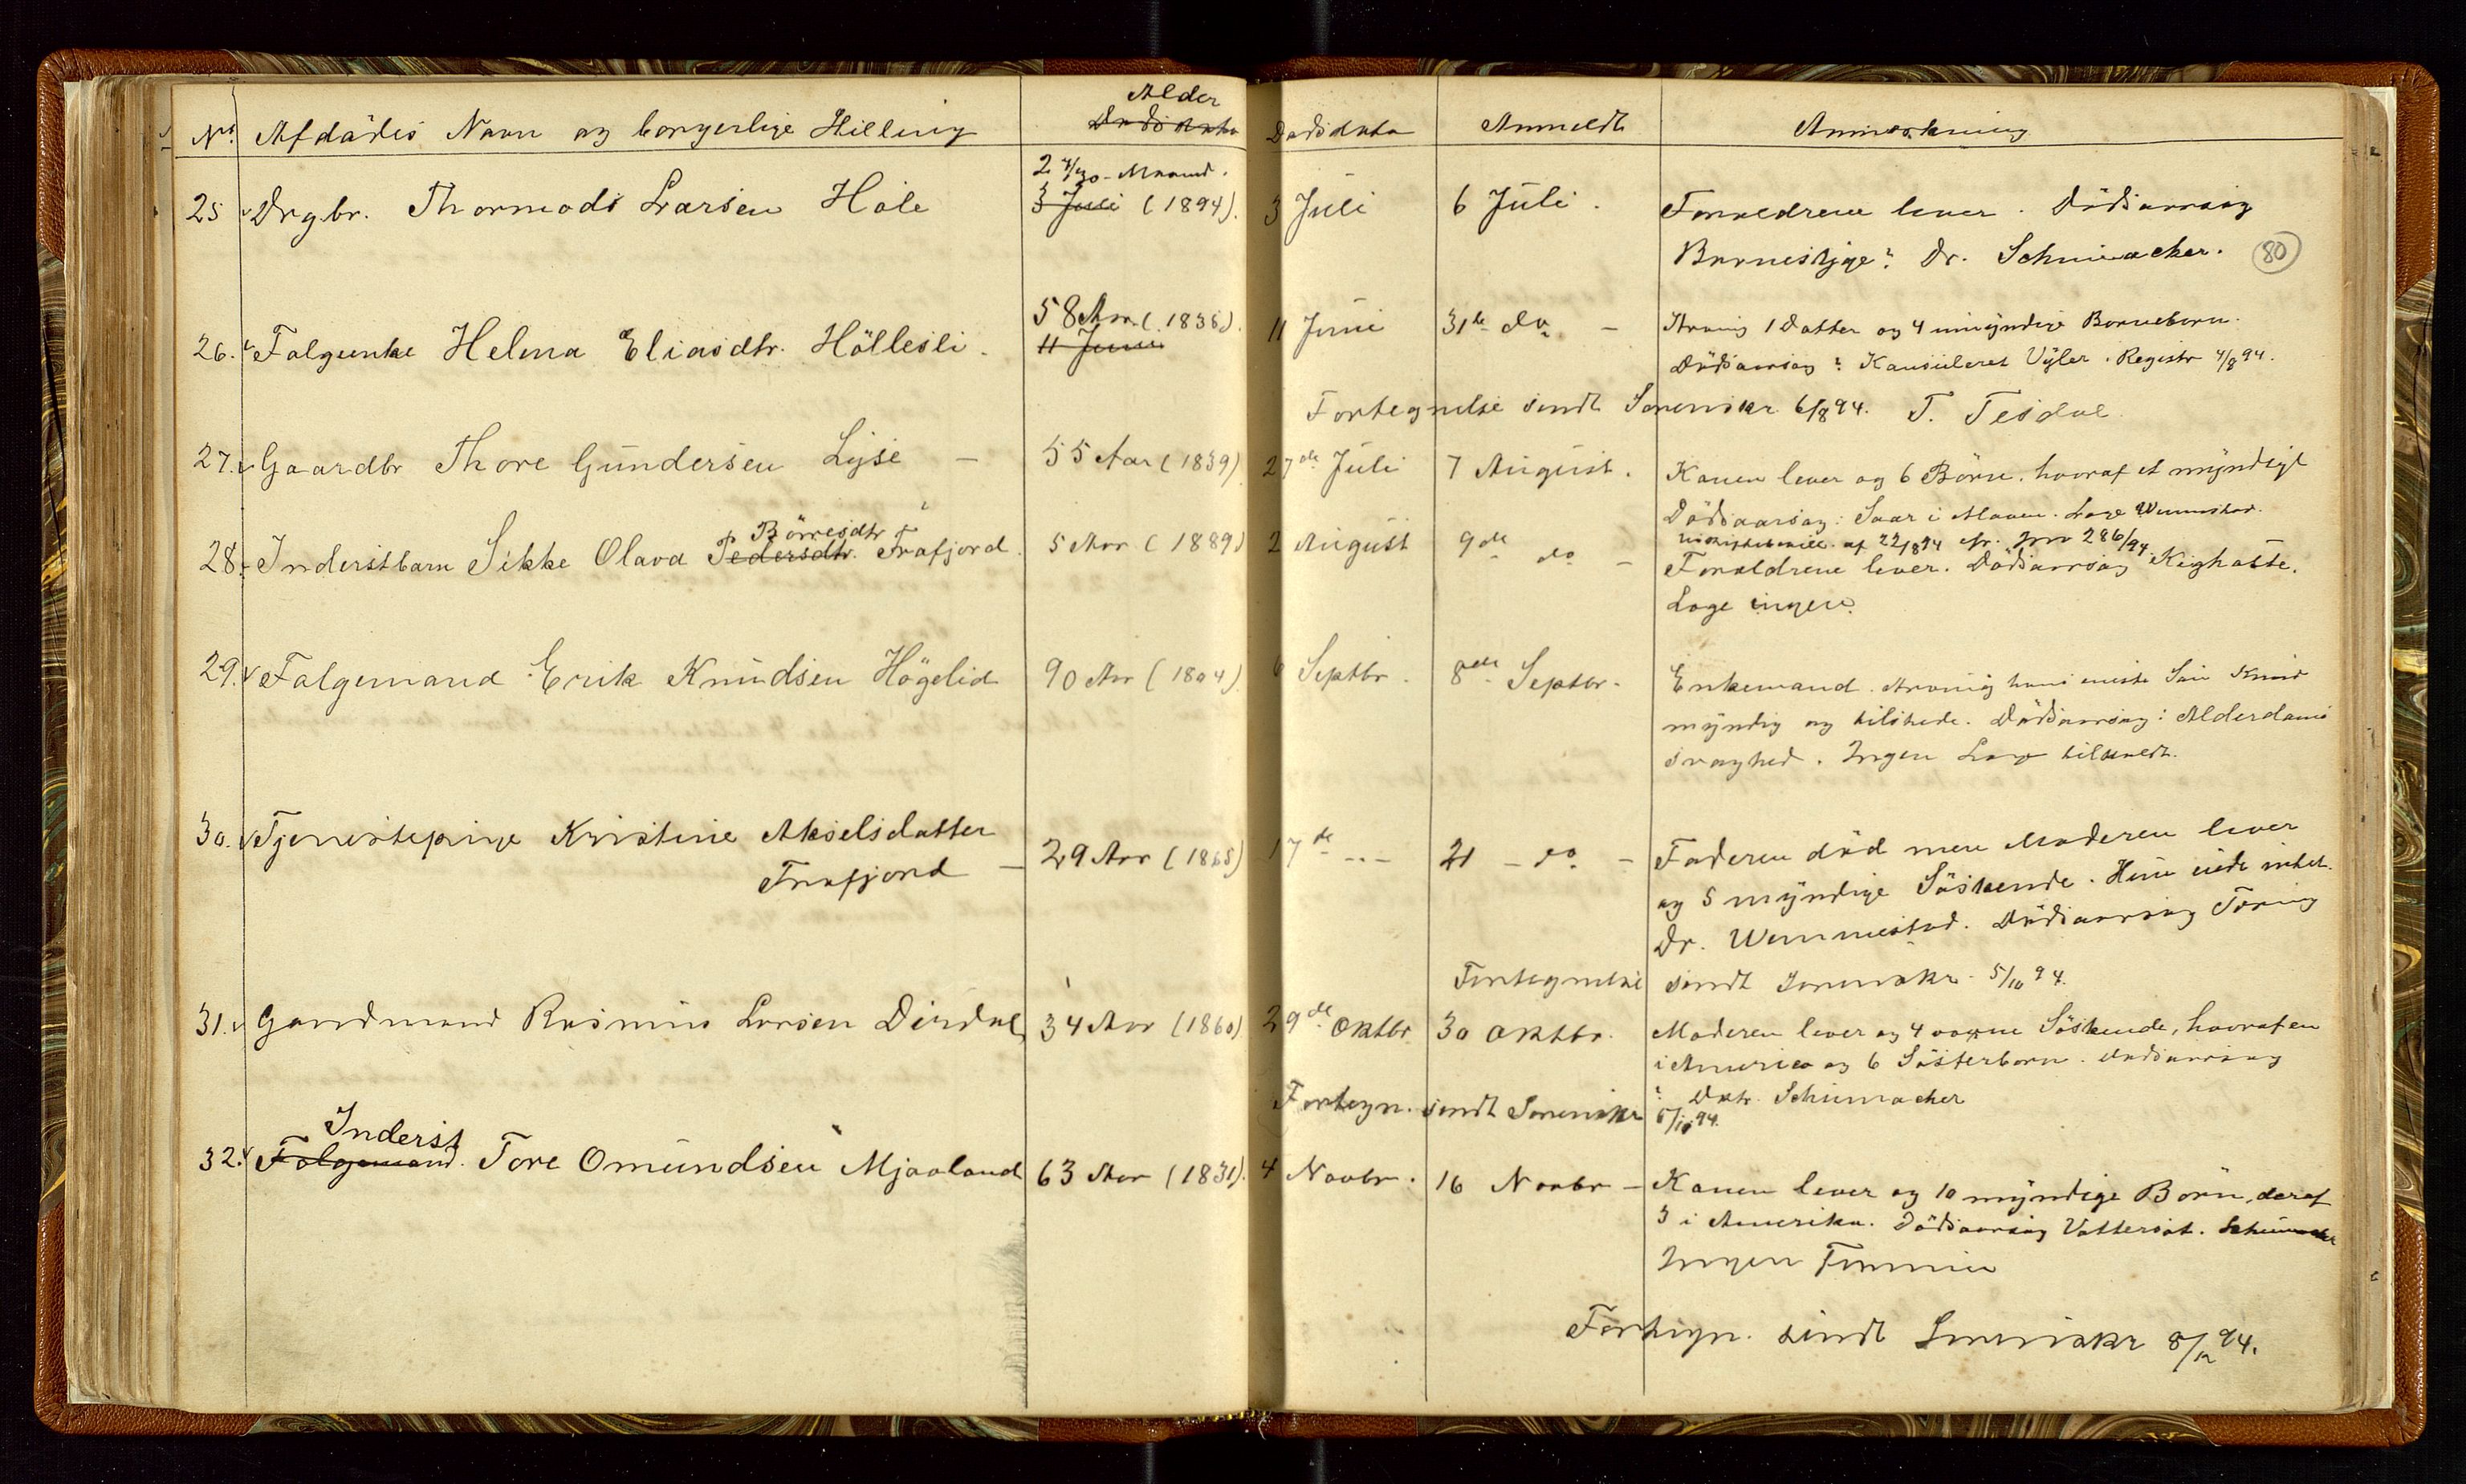 Alder
No. Afdödes Navn og borgerlige Stilling Dødsdato Dødsdato Anmeldt Anmærkning
2 4/30 Maaned.
25 Drgbr. Thormods Larsen Hole 3 Juli (1894). 3 Juli 6 Juli. Forældrene lever. Dödsaarsag
Barnesyge? Dr. Schumacher. 80
58 Aar. (1836).
26. Folgeenke Helena Eliasdtr. Höllesli. 11 Juni 11 Juni 31te do – Arving 1 Datter og 4 umÿndige Bornebørn.
Dödsaarsag? Registr 4/8 94.
Fortegnelse sendt Sorenskr 6/8 94. T. Tesdal
27. Gaardbr Thore Gundersen Lyse – 55 Aar (1839) 27de Juli 7 August. Konen lever og 6 Børn, hvoraf et myndigt
Dödsaarsag: Saar i Maven. Læge Wennestad.
af 22/8 94 cfr. Jnr 286/94.
Börresdtr
28. Inderstbarn Sikke Olava Pedersdtr. Frafjord. 5 Aar (1889) 2 August 9de do – Forældrene lever. Dödsaarsag Kighoste.
Læge ingen.
29. Folgemand Erik Knudsen Högelid 90 Aar (1804) 6 Septbr. 8de Septbr. Enkemand. Arving hans eneste Sön Knud
mÿndig og tilstede. Dödsaarsag: Alderdoms
svaghed. Ingen Læge tilkaldt.
30. Tjenestepige Kristine Akselsdatter
Frafjord – 29 Aar (1865) 17de - - - 21 – do – Faderen död men Moderen lever
og 5 mÿndige Söskende. Hun eiede intet.
Dr. Wennestad. Dödsaarsag Tæring
Fortegnelse sendt Sorenskr. 5/10 94.
31. Gaardmand Rasmus Larsen Dirdal 34 Aar (1860) 29de Oktbr 30 Oktbr. Moderen lever og 4 voxne Söskende, hvoraf en
i America og 6 Sösterbørn. Dødsaarsag
? Doktr. Schumacher
Fortegn. sendt Sorenskr 94.
Inderst
32. Folgemand. Tore Omundsen Mjaaland 63 Aar (1831). 4 Novbr. 16 Novbr – Konen lever og 10 mÿndige Börn, deraf
3 i Amerika. Dödsaarsag Vattersot. Schumacher
Ingen Formue
Fortegn. sendt Sorenskr 8/12 94.